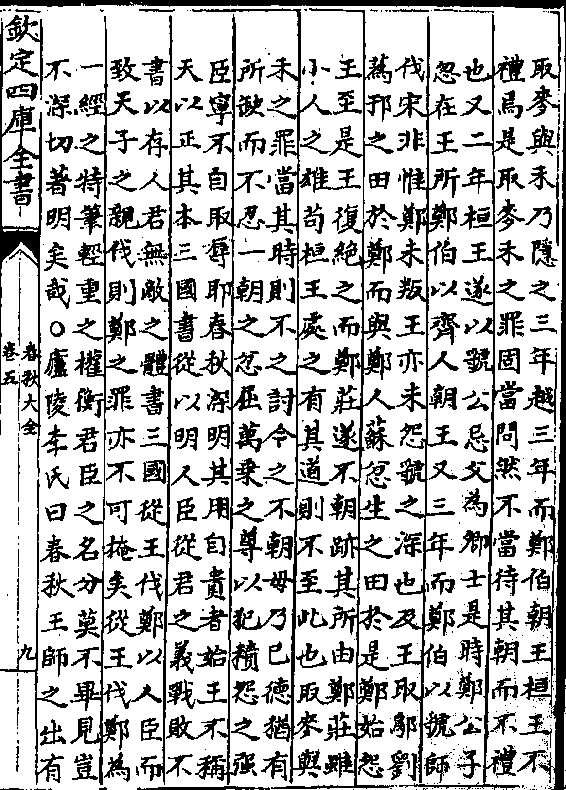 取麥與禾乃隱之三年越三年而鄭伯朝王桓王不
禮焉是取麥禾之罪固當問然不當待其朝而不禮
也又二年桓王遂以虢公忌父為卿士是時鄭公子
忽在王所鄭伯以齊人朝王又三年而鄭伯以虢師
伐宋非惟鄭未叛王亦未怨虢之深也及王取鄔劉
蒍邘之田於鄭而與鄭人蘇忿生之田於是鄭始怨
王至是王復絶之而鄭莊遂不朝跡其所由鄭莊雖
小人之雄苟桓王處之有其道則不至此也取麥與
禾之罪當其時則不之討今之不朝毋乃已德猶有
所歉而不忍一朝之忿屈萬乗之尊以犯積怨之强
臣寧不自取辱耶春秋深明其用自貴者始王不稱
天以正其本三國書從以明人臣從君之義戰敗不
書以存人君無敵之體書三國從王伐鄭以人臣而
致天子之親伐則鄭之罪亦不可掩矣從王伐鄭為
一經之特筆輕重之權衡君臣之名分莫不畢見豈
不深切著明矣哉○廬陵李氏曰春秋王師之出有
欽定四庫全書
春秋大全
卷五
九